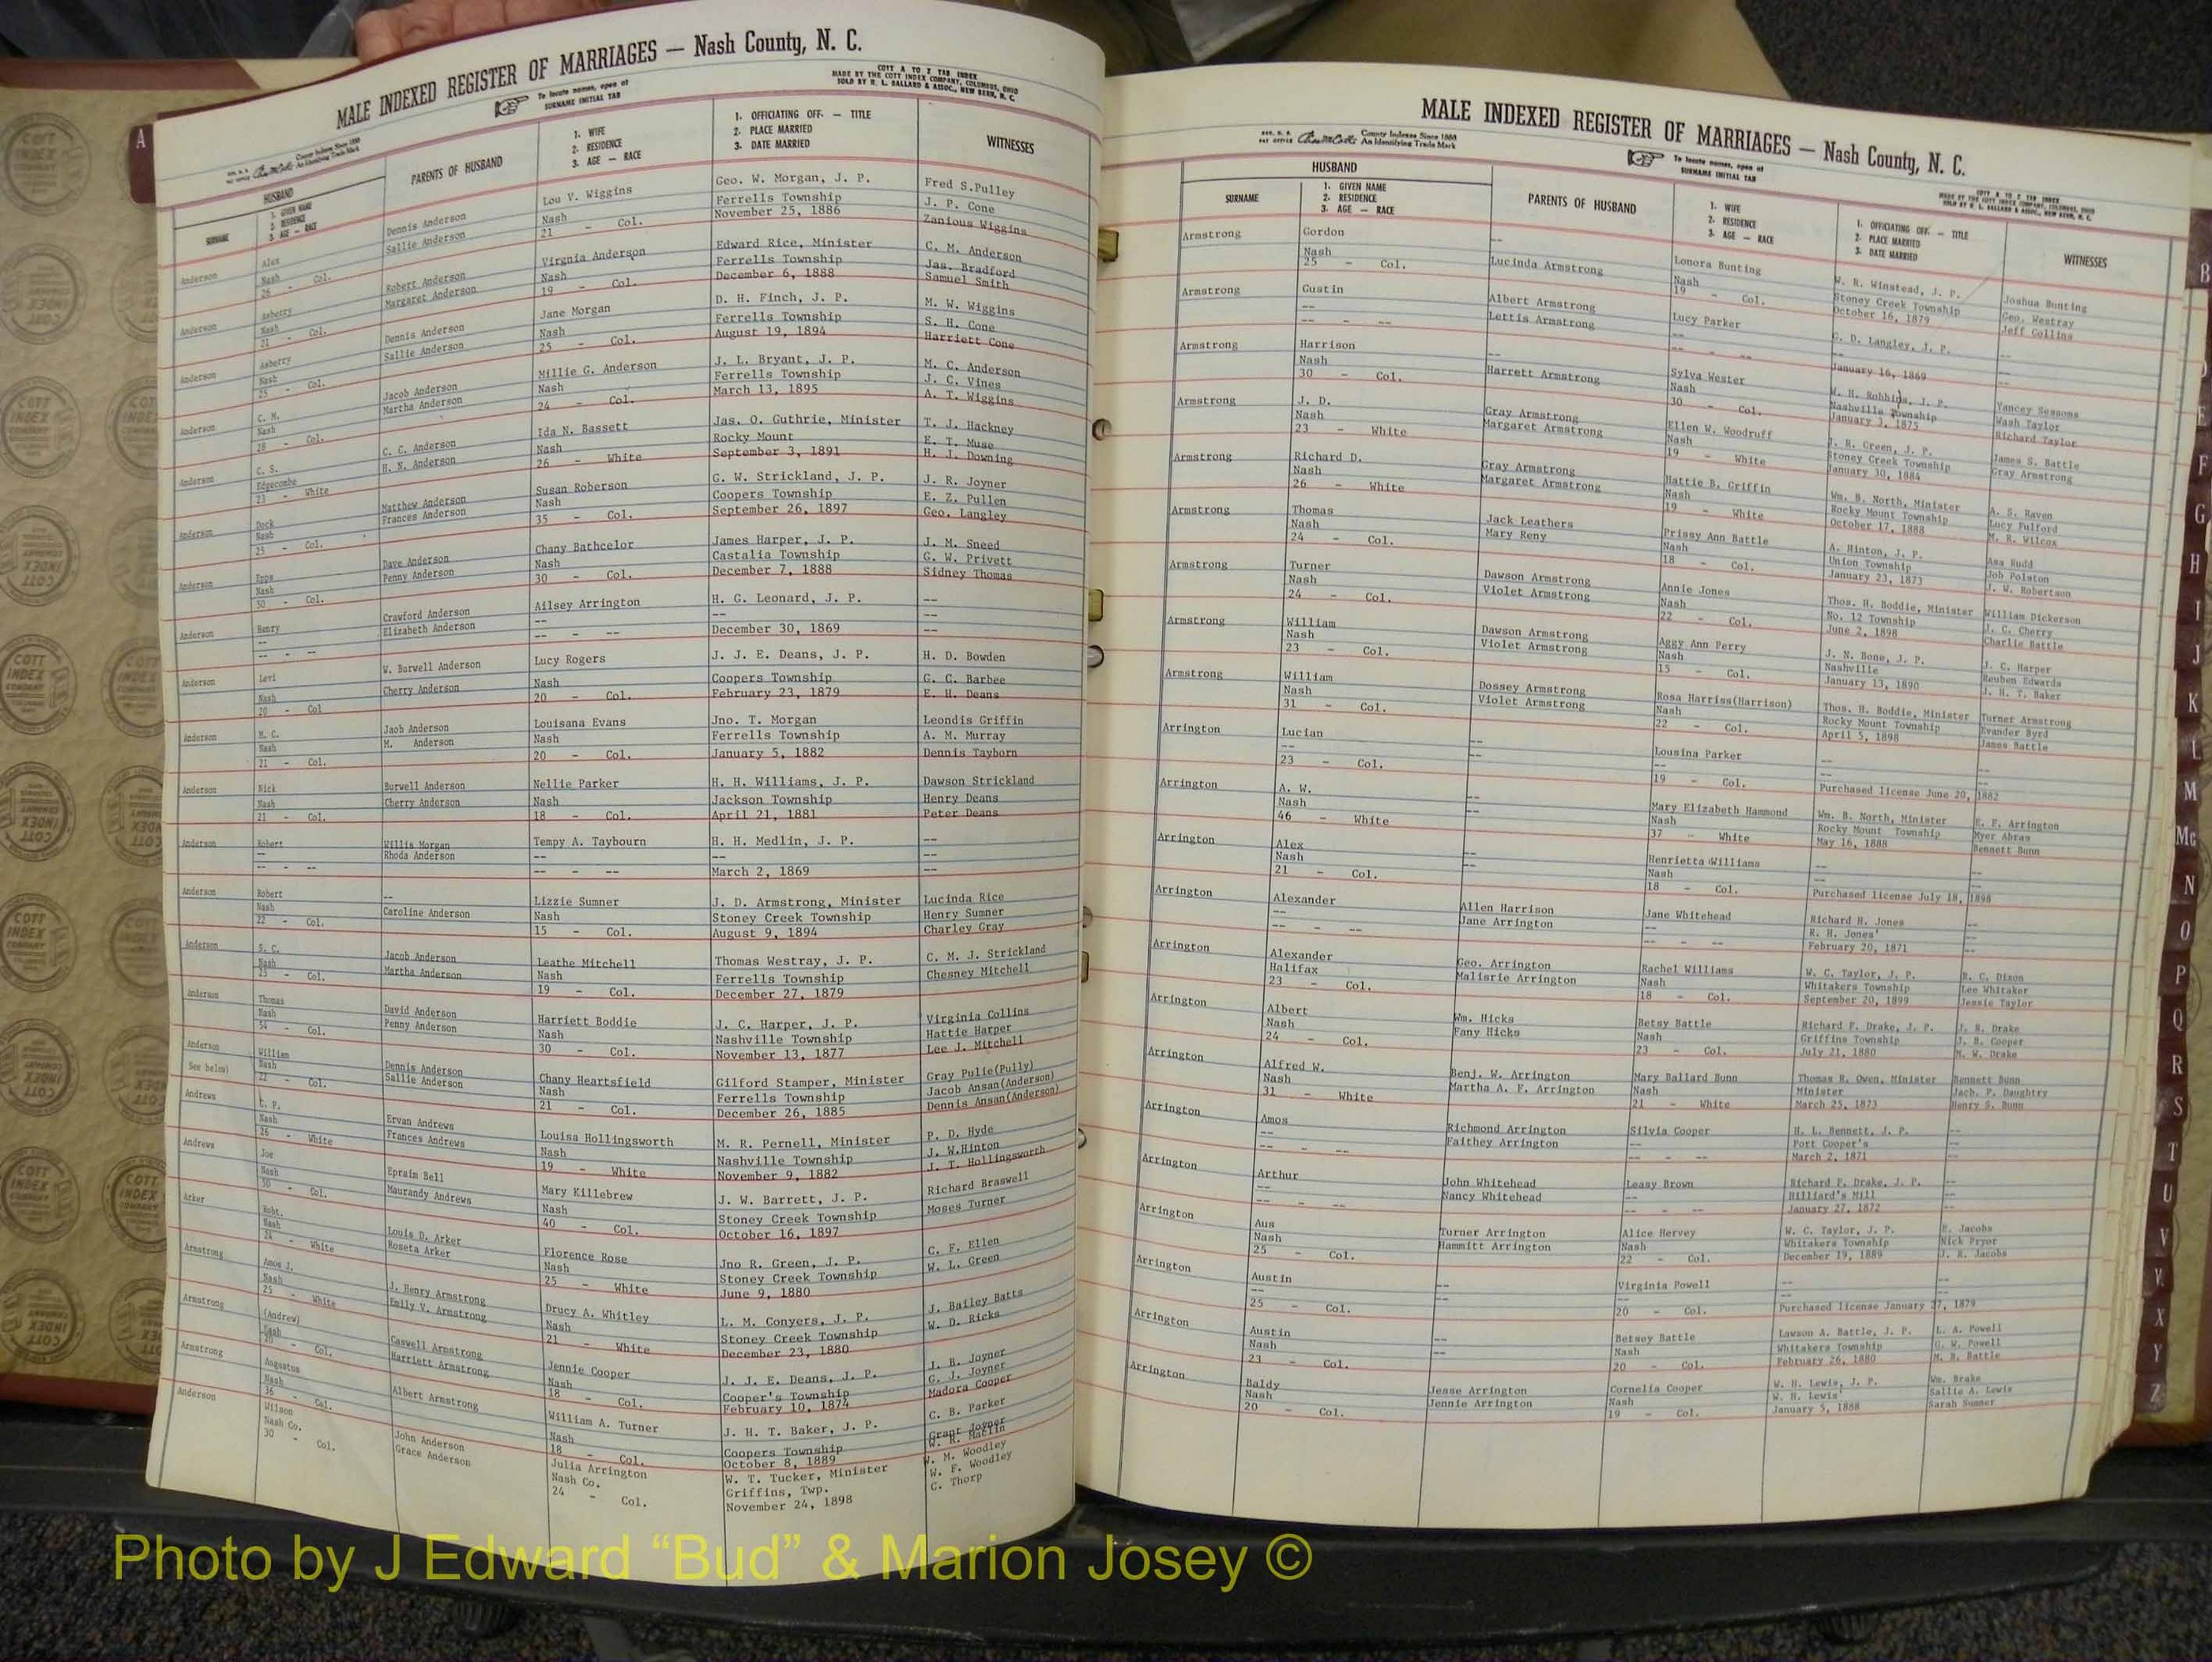 MALE INDEXED REGISTER OF MARRIAGES — Nash County, N. C.
To locate names, open at
SURNAME INITIAL TAB
COTT A TO Z TAB INDEX
MADE BY THE COTT INDEX COMPANY, COLUMBUS, OHIO
SOLD BY R. L. BALLARD & ASSOC., NEW BERN, N. C.
County Indexes Since 1888
An Identifying Trade Mark
HUSBAND
SURNAME
1. GIVEN NAME
2. RESIDENCE
3. AGE — RACE
PARENTS OF HUSBAND
1. WIFE
2. RESIDENCE
3. AGE — RACE
1. OFFICIATING OFF. — TITLE
2. PLACE MARRIED
3. DATE MARRIED
WITNESSES
A
Anderson Alex Dennis Anderson Lou V. Wiggins Geo. W. Morgan, J. P. Fred S.Pulley
Nash Sallie Anderson Nash Ferrells Township J. P. Cone
26 - Col. 21 - Col. November 25, 1886 Zanious Wiggins
Anderson Asberry Robert Anderson Virgnia Anderson Edward Rice, Minister C. M. Anderson
Nash Margaret Anderson Nash Ferrells Township Jas. Bradford
21 - Col. 19 - Col. December 6, 1888 Samuel Smith
Anderson Asberry Dennis Anderson Jane Morgan D. H. Finch, J. P. M. W. Wiggins
Nash Sallie Anderson Nash Ferrells Township S. H. Cone
25 - Col. 25 - Col. August 19, 1894 Harriett Cone
Anderson C. M. Jacob Anderson Millie G. Anderson J. L. Bryant, J. P. M. C. Anderson
Nash Martha Anderson Nash Ferrells Township J. C. Vines
28 - Col. 24 - Col. March 13, 1895 A. T. Wiggins
Anderson C. S. C. C. Anderson Ida N. Bassett Jas. O. Guthrie, Minister T. J. Hackney
Edgecombe H. N. Anderson Nash Rocky Mount E. T. Muse
23 - White 26 - White September 3, 1891 H. J. Downing
Anderson Dock Matthew Anderson Susan Roberson G. W. Strickland, J. P. J. R. Joyner
Nash Frances Anderson Nash Coopers Township E. Z. Pullen
25 - Col. 35 - Col. September 26, 1897 Geo. Langley
Anderson Epps Dave Anderson Chany Bathcelor James Harper, J. P. J. M. Sneed
Nash Penny Anderson Nash Castalia Township G. W. Privett
50 - Col. 30 - Col. December 7, 1888 Sidney Thomas
Anderson Henry Crawford Anderson Ailsey Arrington H. G. Leonard, J. P. --
-- Elizabeth Anderson -- -- --
-- - -- -- - -- December 30, 1869 --
Anderson Levi W. Burwell Anderson Lucy Rogers J. J. E. Deans, J. P. H. D. Bowden
Nash Cherry Anderson Nash Coopers Township G. C. Barbee
20 - Col 20 - Col. February 23, 1879 E. H. Deans
Anderson M. C. Jaob Anderson Louisana Evans Jno. T. Morgan Leondis Griffin
Nash M. Anderson Nash Ferrells Township A. M. Murray
21 - Col. 20 - Col. January 5, 1882 Dennis Tayborn
Anderson Nick Burwell Anderson Nellie Parker H. H. Williams, J. P. Dawson Strickland
Nash Cherry Anderson Nash Jackson Township Henry Deans
21 - Col. 18 - Col. April 21, 1881 Peter Deans
Anderson Robert Willis Morgan Tempy A. Taybourn H. H. Medlin, J. P. --
-- Rhoda Anderson -- -- --
-- - -- -- - -- March 2, 1869 --
Anderson Robert -- Lizzie Sumner J. D. Armstrong, Minister Lucinda Rice
Nash Caroline Anderson Nash Stoney Creek Township Henry Sumner
22 - Col. 15 - Col. August 9, 1894 Charley Gray
Anderson S. C. Jacob Anderson Leathe Mitchell Thomas Westray, J. P. C. M. J. Strickland
Nash Martha Anderson Nash Ferrells Township Chesney Mitchell
23 - Col. 19 - Col. December 27, 1879
Anderson Thomas David Anderson Harriett Boddie J. C. Harper, J. P. Virginia Collins
Nash Penny Anderson Nash Nashville Township Hattie Harper
54 - Col. 30 - Col. November 13, 1877 Lee J. Mitchell
Anderson William Dennis Anderson Chany Heartsfield Gilford Stamper, Minister Gray Pulie(Pully)
See below) Nash Sallie Anderson Nash Ferrells Township Jacob Ansan(Anderson)
22 - Col. 21 - Col. December 26, 1885 Dennis Ansan(Anderson)
Andrews P. Ervan Andrews Louisa Hollingsworth M. R. Pernell, Minister P. D. Hyde
Nash Frances Andrews Nash Nashville Township J. W.Hinton
26 - White 19 - White November 9, 1882 J. T. Hollingsworth
Andrews Joe Epraim Bell Mary Killebrew J. W. Barrett, J. P. Richard Braswell
Nash Maurandy Andrews Nash Stoney Creek Township Moses Turner
50 - Col. 40 - Col. October 16, 1897
Arker Robt. Louis D. Arker Florence Rose Jno R. Green, J. P. C. F. Ellen
Nash Roseta Arker Nash Stoney Creek Township W. L. Green
24 - White 25 - White June 9, 1880
Armstrong Amos J. J. Henry Armstrong Drucy A. Whitley L. M. Conyers, J. P. J. Bailey Batts
Nash Emily V. Armstrong Nash Stoney Creek Township W. D. Ricks
25 - White 21 - White December 23, 1880
Armstrong (Andrew) Caswell Armstrong Jennie Cooper J. J. E. Deans, J. P. J. B. Joyner
Nash Harriett Armstrong Nash Cooper's Township G. J. Joyner
20 - Col. 18 - Col. February 10, 1874 Madora Cooper
Armstrong Augustus Albert Armstrong William A. Turner J. H. T. Baker, J. P. C. B. Parker
Nash Nash Coopers Township Grant Joyner
36 - Col. 18 - Col. October 8, 1889
Anderson Wilson John Anderson Julia Arrington W. T. Tucker, Minister W. M. Woodley
Nash Co. Grace Anderson Nash Co. Griffins, Twp. W. F. Woodley
30 - Col. 24 - Col. November 24, 1898 C. Thorp
MALE INDEXED REGISTER OF MARRIAGES — Nash County, N. C.
County Indexes Since 1888
An Identifying Trade Mark
To locate names, open at
SURNAME INITIAL TAB
COTT A TO Z TAB INDEX
MADE BY THE COTT INDEX COMPANY, COLUMBUS, OHIO
SOLD BY R. L. BALLARD & ASSOC., NEW BERN, N. C.
HUSBAND
SURNAME
1. GIVEN NAME
2. RESIDENCE
3. AGE — RACE
PARENTS OF HUSBAND
1. WIFE
2. RESIDENCE
3. AGE — RACE
1. OFFICIATING OFF. — TITLE
2. PLACE MARRIED
3. DATE MARRIED
WITNESSES
Armstrong Gordon -- Lonora Bunting W. R. Winstead, J. P. Joshua Bunting
Nash Lucinda Armstrong Nash Stoney Creek Township Geo. Westray
25 - Col. 19 - Col. October 16, 1879 Jeff Collins
Armstrong Gustin Albert Armstrong Lucy Parker G. D. Langley, J. P. --
-- Lettis Armstrong -- -- --
-- - -- -- - -- January 16, 1869 --
Armstrong Harrison -- Sylva Wester W. H. Robbins, J. P. Yancey Sessoms
Nash Harrett Armstrong Nash Nashville Township Wash Taylor
30 - Col. 30 - Col. January 3, 1875 Richard Taylor
Armstrong J. D. Gray Armstrong Ellen W. Woodruff J. R. Green, J. P. James S. Battle
Nash Margaret Armstrong Nash Stoney Creek Township Gray Armstrong
23 - White 19 - White January 30, 1884
Armstrong Richard D. Gray Armstrong Hattie B. Griffin Wm. B. North, Minister A. S. Raven
Nash Margaret Armstrong Nash Rocky Mount Township Lucy Fulford
26 - White 19 - White October 17, 1888 M. R. Wilcox
Armstrong Thomas Jack Leathers Prissy Ann Battle A. Hinton, J. P. Asa Rudd
Nash Mary Reny Nash Union Township Job Polston
24 - Col. 18 - Col. January 23, 1873 J. W. Robertson
Armstrong Turner Dawson Armstrong Annie Jones Thos. H. Boddie, Minister William Dickerson
Nash Violet Armstrong Nash No. 12 Township J. C. Cherry
24 - Col. 22 - Col. June 2, 1898 Charlie Battle
Armstrong William Dawson Armstrong Aggy Ann Perry J. N. Bone, J. P. J. C. Harper
Nash Violet Armstrong Nash Nashville Reuben Edwards
23 - Col. 15 - Col. January 13, 1890 J. H. T. Baker
Armstrong William Dossey Armstrong Rosa Harriss(Harrison) Thos. H. Boddie, Minister Turner Armstrong
Nash Violet Armstrong Nash Rocky Mount Township Evander Byrd
31 - Col. 22 - Col. April 5, 1898 James Battle
Arrington Lucian -- Lousina Parker -- --
-- -- -- -- --
23 - Col. 19 - Col. Purchased license June 20, 1882
Arrington A. W. -- Mary Elizabeth Hammond Wm. B. North, Minister E. F. Arrington
Nash -- Nash Rocky Mount Township Myer Abram
46 - White 37 - White May 16, 1888 Bennett Bunn
Arrington Alex -- Henrietta Williams -- --
Nash -- Nash -- --
21 - Col. 18 - Col. Purchased license July 18, 1898
Arrington Alexander Allen Harrison Jane Whitehead Richard H. Jones --
-- Jane Arrington -- R. H. Jones' --
-- - -- -- - -- February 20, 1871 --
Arrington Alexander Geo. Arrington Rachel Williams W. C. Taylor, J. P. R. C. Dixon
Halifax Malisrie Arrington Nash Whitakers Township Lee Whitaker
23 - Col. 18 - Col. September 20, 1899 Jessie Taylor
Arrington Albert Wm. Hicks Betsy Battle Richard F. Drake, J. P. J. R. Drake
Nash Fany Hicks Nash Griffins Township J. B. Cooper
24 - Col. 23 - Col. July 21, 1880 N. W. Drake
Arrington Alfred W. Benj. W. Arrington Mary Ballard Bunn Thomas R. Owen, Minister Bennett Bunn
Nash Martha A. F. Arrington Nash Minister Jach. P. Daughtry
31 - White 21 - White March 25, 1873 Henry S. Bunn
Arrington Amos Richmond Arrington Silvia Cooper H. L. Bennett, J. P. --
-- Faithey Arrington -- Port Cooper's --
-- - -- -- - -- March 2, 1871 --
Arrington Arthur John Whitehead Leasy Brown Richard F. Drake, J. P. --
-- Nancy Whitehead -- Hilliard's Mill --
-- - -- -- - -- January 27, 1872 --
Arrington Aus Turner Arrington Alice Hervey W. C. Taylor, J. P. E. Jacobs
Nash Hammitt Arrington Nash Whitakers Township Nick Pryor
25 - Col. 22 - Col. December 19, 1889 J. R. Jacobs
Arrington Austin -- Virginia Powell -- --
-- -- -- -- --
25 - Col. 20 - Col. Purchased license January 27, 1879
Arrington Austin -- Betsey Battle Lawson A. Battle, J. P. L. A. Powell
Nash -- Nash Whitakers Township G. W. Powell
23 - Col. 20 - Col. February 26, 1880 M. B. Battle
Arrington Baldy Jesse Arrington Cornelia Cooper W. H. Lewis, J. P. Wm. Drake
Nash Jennie Arrington Nash W. H. Lewis' Sallie A. Lewis
20 - Col. 19 - Col. January 5, 1888 Sarah Sumner
B
F
G
H
I
J
K
L
M
Mc
N
O
P
Q
R
S
T
U
V
X
Y
Z
COTT INDEX COMPANY
Photo by J Edward “Bud” & Marion Josey ©